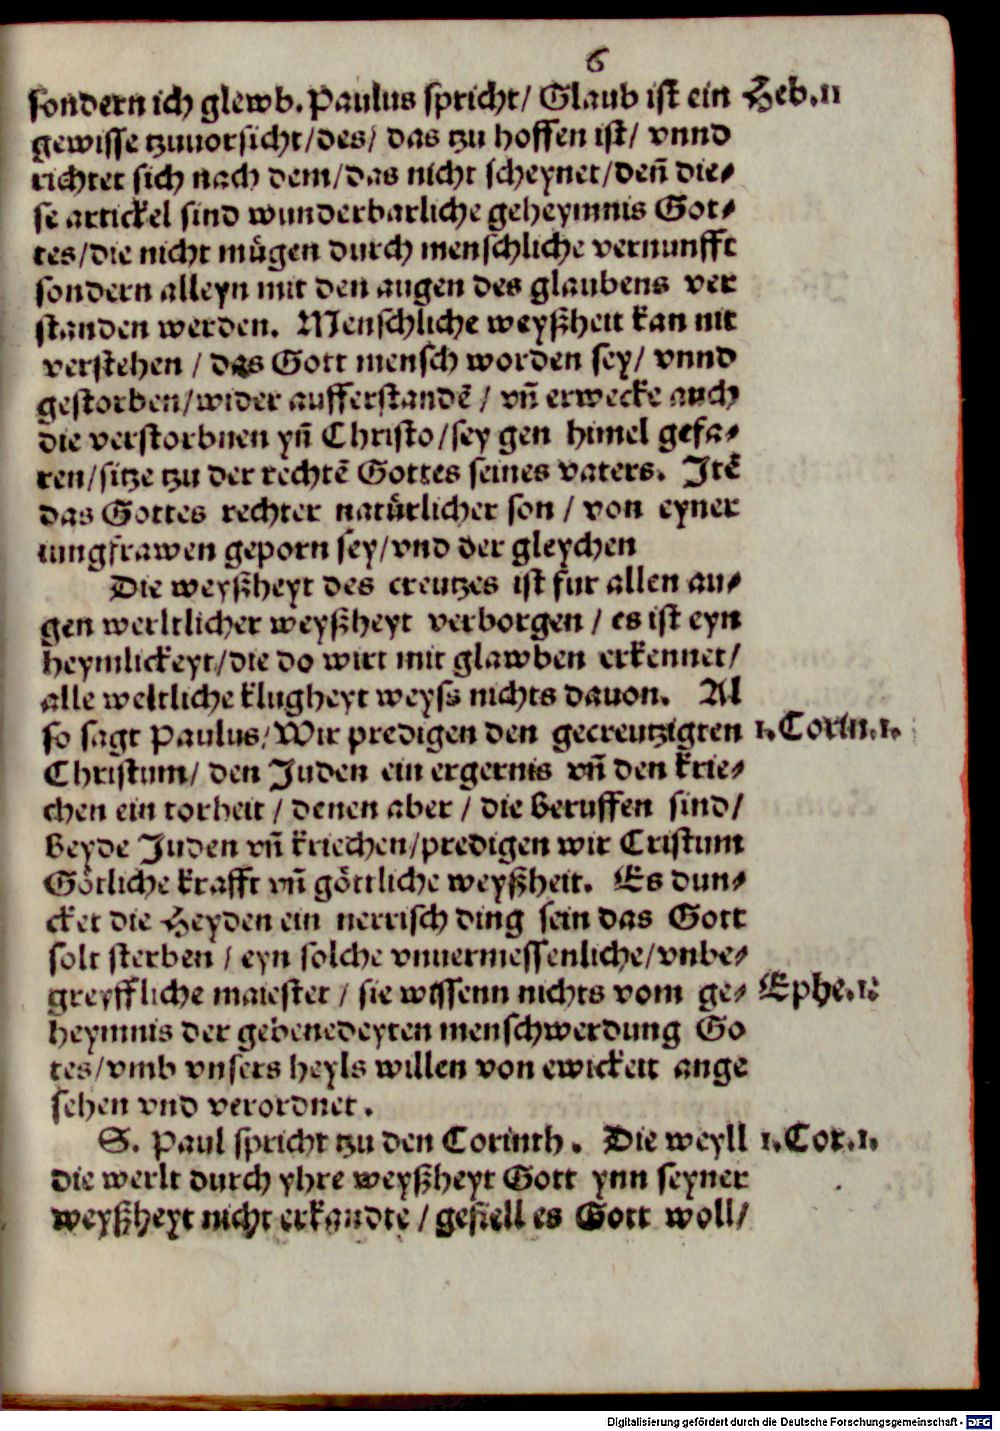 6
sondern ich glewb. Paulus spricht/ Glaub ist ein Heb.11
gewisse tzuuorsicht/des/ das tzu hoffen ist/ vnnd
richtet sich nach dem/das nicht scheynet/den̄ die⸗
se artickel sind wunderbarliche geheymnis Got⸗
tes/die nicht mu̇gen durch menschliche vernunfft
sondern alleyn mit den augen des glaubens ver
standen werden. Menschliche weyßheit kan nit
verstehen / das Gott mensch worden sey/ vnnd
gestorben/wider aufferstandē / vn̄ erwecke auch
die verstorbnen yn̄ Christo/sey gen himel gefa⸗
ren/sitze tzu der rechtē Gottes seines vaters. Itē
das Gottes rechter natu̇rlicher son / von eyner
iungfrawen geporn sey/vnd der gleychen
Die weyßheyt des creutzes ist fur allen au⸗
gen werltlicher weyßheyt verborgen / es ist eyn
heymlickeyt/die do wirt mit glawben erkennet/
alle weltliche klugheyt weyss nichts dauon. Al
so sagt Paulus/Wir predigen den gecreutzigten 1.Corin.1.
Christum/ den Juden ein ergernis vn̄ den krie⸗
chen ein torheit / denen aber / die beruffen sind/
beyde Juden vn̄ kriechen/predigen wir Cristum
Gȯtliche krafft vn̄ gȯttliche weyßheit. Es dun⸗
cket die Heyden ein nerrisch ding sein das Gott
solt sterben / eyn solche vnuermessenliche/vnbe⸗
greyffliche maiestet / sie wissenn nichts vom ge⸗ Ephe.1.
heymnis der gebenedeyten menschwerdung Go
tes/vmb vnsers heyls willen von ewickeit ange
sehen vnd verordnet.
S. Paul spricht tzu den Corinth. Die weyll 1.Cor.1.
die werlt durch yhre weyßheyt Gott ynn seyner
weyßheyt nicht erkandte / gefiell es Gott woll/
Digitalisierung gefördert durch die Deutsche Forschungsgemeinschaft - DFG